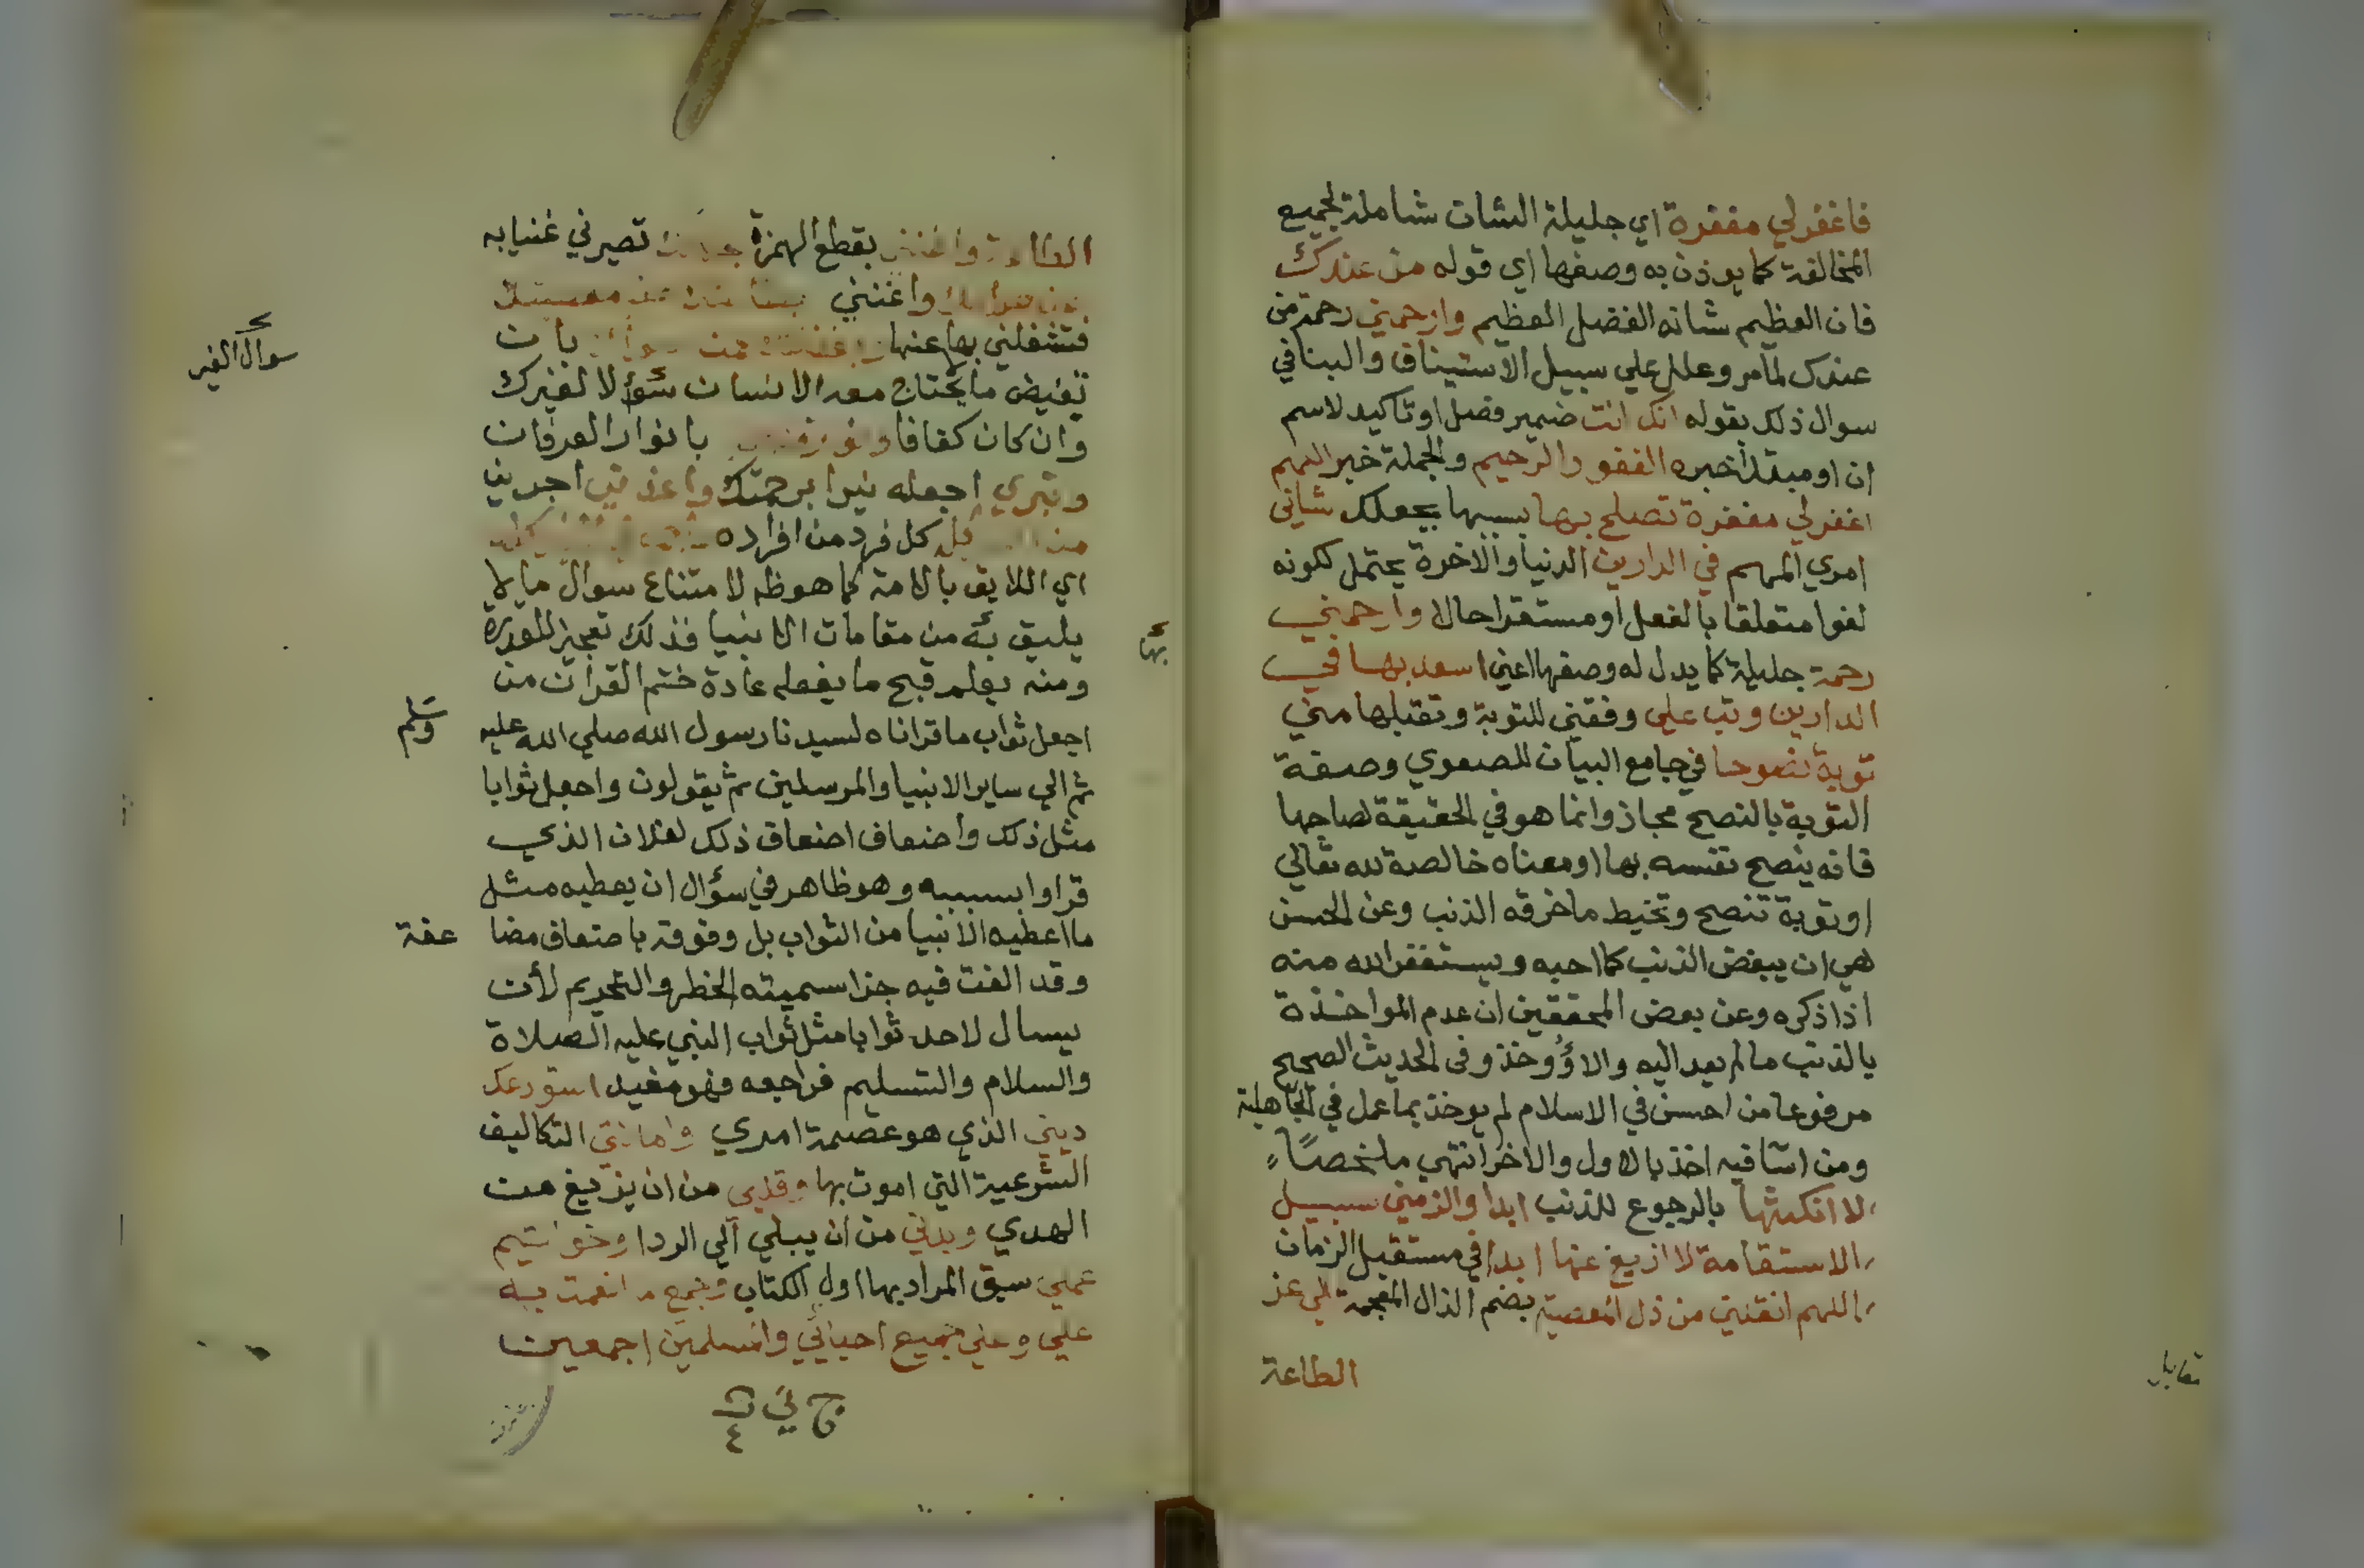 فاغفر لي مغفرة اي جليلة الشان شاملة لجميع
المخالفة كما يوذن به وصفها اي قوله من عندك
فان العظيم شانه الفضل العظيم وارحمني رحمة من
عندك لما مر وعلل علي سبيل الاستيناف والبنا في
سوال ذلك بقوله انك انت ضمير فصل او تاكيد لاسم
ان او مبتدا خبره الغفور الرحيم والجملة خبر اللهم
اغفر لي مغفرة تصلح بها بسببها بجعلك شاني
امري المهم في الدارين الدنيا والاخرة يحتمل لكونه
لغوا متعلقا بالفعل او مستقرا حالا وارحمني
رحمة جليلة كما يدل له وصفها اعني اسعد بها في
الدارين وتب علي وفقني للتوبة وتقبلها مني
توبة نصوحا في جامع البيان للصفوي وصفة
التوبة بالنصح مجاز وانما هو في الحقيقة لصاحبها
فانه ينصح نفسه بها او معناه خالصة لله تعالي
او توبة تنصح وتخيط ما خرقه الذنب وعن الحسن
هي ان يبغض الذنب كما احبه ويستغفر الله منه
اذا ذكره وعن بعض المحققين ان عدم المواخذة
بالذنب ما لم يعد اليه والا وُوخذ وفي الحديث الصحيح
مرفوعا من احسن في الاسلام لم يوخذ بما عمل في الجاهلية
ومن اسا فيه اخذ بالاول والاخر انتهي ملخصا
لا انكثها بالرجوع للذنب ابدا والزمني سبيل
الاستقامة لا ازيغ عنها ابدا في مستقبل الزمان
اللهم انقلني من ذل المعصية بضم الذال المعجمة الي عز
الطاعة
مقابل
بها
واغنني بقطع الهمزة تصيرني غنيا به
واغنني
فتشغلني بها عنها بان
تفيض ما يحتاج معه الانسان سؤلا لغيرك
سوال الغير
وان كان كفافا ونور بانوار العرفان
وقبري اجعله نيرا برحمتك واعذني اجرني
من كل فرد من افراده
اي اللايق بالامة كما هو ظ لا متناع سوال ما لا
يليق به من مقامات الانبيا فذلك
ومنه يعلم قبح ما يفعله عادة ختم القران من
اجعل ثواب ما قراناه لسيدنا رسول الله صلي الله عليه وسلم
ثم الي ساير الانبيا والمرسلين ثم يقولون واجعل ثوابا
مثل ذلك واضعاف اضعاف ذلك لفلان الذي
قراوا بسببه وهو ظاهر في سؤال ان يعطيه مثل
ما اعطيه الانبيا من الثواب بل وفوقه باضعاف مضا عفة
وقد الفت فيه جزا سميته الخطر والتحريم لان
يسال لاحد ثوابا مثل ثواب النبي عليه الصلاة
والسلام والتسليم فراجعه فهو مفيد استودعك
ديني الذي هو عصمة امري وامانتي التكاليف
الشرعية التي اموت بها وقلبي من ان يزيغ من
الهدي وبدني من ان يبلي الي الردا وخواتيم
عملي سبق المراد بها اول الكتاب وجميع ما انعمت به
علي وعلي جميع احبابي والمسلمين اجمعين